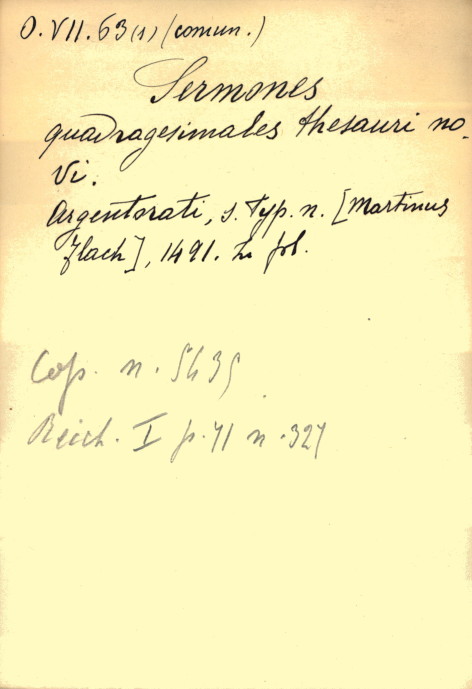 O.VII.63(1)(comun.)
Sermones
quadragesimales thesauri no-
vi.
Argentorati, s. typ. n. [Martinus
Flach], 1491. in fol.
Cop. n. 5435
Reich. I p. 71 n. 327